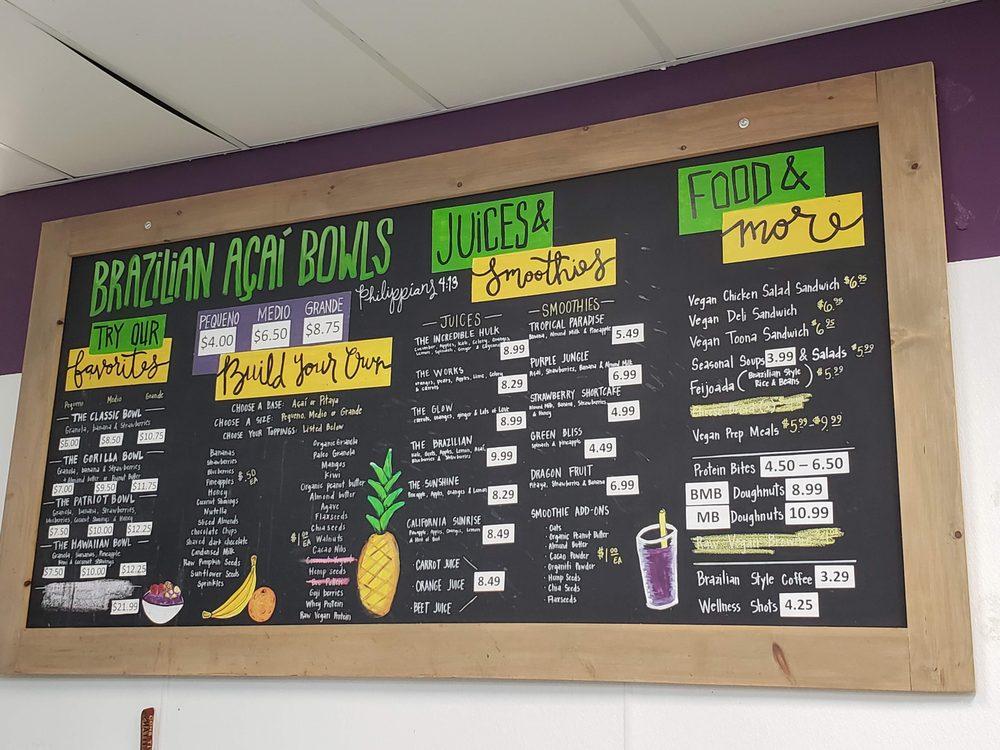 BRAZILIAN AÇAÍ BOWLS
Philippians 4:13
TRY OUR
favorites
Pequeno Medio Grande
THE CLASSIC BOWL
Granola, banana & Strawberries
$6.00 $8.50 $10.75
THE GORILLA BOWL
Granola, banana & Strawberries
+ Almond butter or Peanut Butter
$7.00 $9.50 $11.75
THE PATRIOT BOWL
Granola, banana, Strawberries,
blueberries, Coconut Shavings & Honey
$7.50 $10.00 $12.25
THE HAWAIIAN BOWL
Granola, bananas, Pineapple
Kiwi & Coconut Shavings
$7.50 $10.00 $12.25
$21.99
PEQUENO MEDIO GRANDE
$4.00 $6.50 $8.75
Build Your Own
CHOOSE A BASE: Açaí or Pitaya
CHOOSE A SIZE: Pequeno, Medio or Grande
CHOOSE YOUR TOPPINGS: Listed Below
Bananas
Strawberries
Blueberries
Pineapples
Honey
$.50 EA
Coconut Shavings
Nutella
Sliced Almonds
Chocolate Chips
Shaved dark chocolate
Condensed Milk
Raw Pumpkin Seeds
Sunflower Seeds
Sprinkles
Organic Granola
Paleo Granola
Mangos
Kiwi
Organic Peanut butter
Almond butter
Agave
Flaxseeds
Chia seeds
Walnuts
Cacao Nibs
$1.00 EA
Hemp seeds
Bee Pollen
Goji berries
Whey Protein
Raw Vegan Protein
JUICES &
Smoothies
—JUICES—
THE INCREDIBLE HULK
8.99
THE WORKS
8.29
& carrots
THE GLOW
carrots, oranges, ginger & Lots of Love
8.99
THE BRAZILIAN
9.99
Blueberries & Strawberries
THE SUNSHINE
Pineapple, Apples, Oranges & Lemon
8.29
CALIFORNIA SUNRISE
8.49
CARROT JUICE
ORANGE JUICE 8.49
BEET JUICE
—SMOOTHIES—
TROPICAL PARADISE
Banana, Almond Milk & Pineapple
5.49
PURPLE JUNGLE
Açaí, Strawberries, Banana & Almond Milk
6.99
STRAWBERRY SHORTCAKE
Almond Milk, Banana, Strawberries
& Honey
4.99
GREEN BLISS
Spinach & pineapple
4.49
DRAGON FRUIT
Pitaya, Strawberries & Banana
6.99
SMOOTHIE ADD-ONS
· Oats
· Organic Peanut Butter
· Almond Butter
· Cacao Powder
$1.00 EA
· Hemp Seeds
· Chia Seeds
· Flaxseeds
FOOD &
more
Vegan Chicken Salad Sandwich $6.95
Vegan Deli Sandwich $6.95
Vegan Toona Sandwich $6.95
Seasonal Soups 3.99 & Salads $5.99
Feijoada (Brazilian Style Rice & Beans) $5.99
Vegan Prep Meals $5.99-$9.99
Protein Bites 4.50 – 6.50
BMB Doughnuts 8.99
MB Doughnuts 10.99
Brazilian Style Coffee 3.29
Wellness Shots 4.25